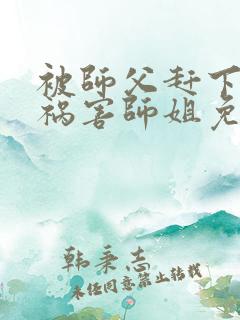 被師父赶下
祸害師姐免
韩秉志
未经同意禁止转载